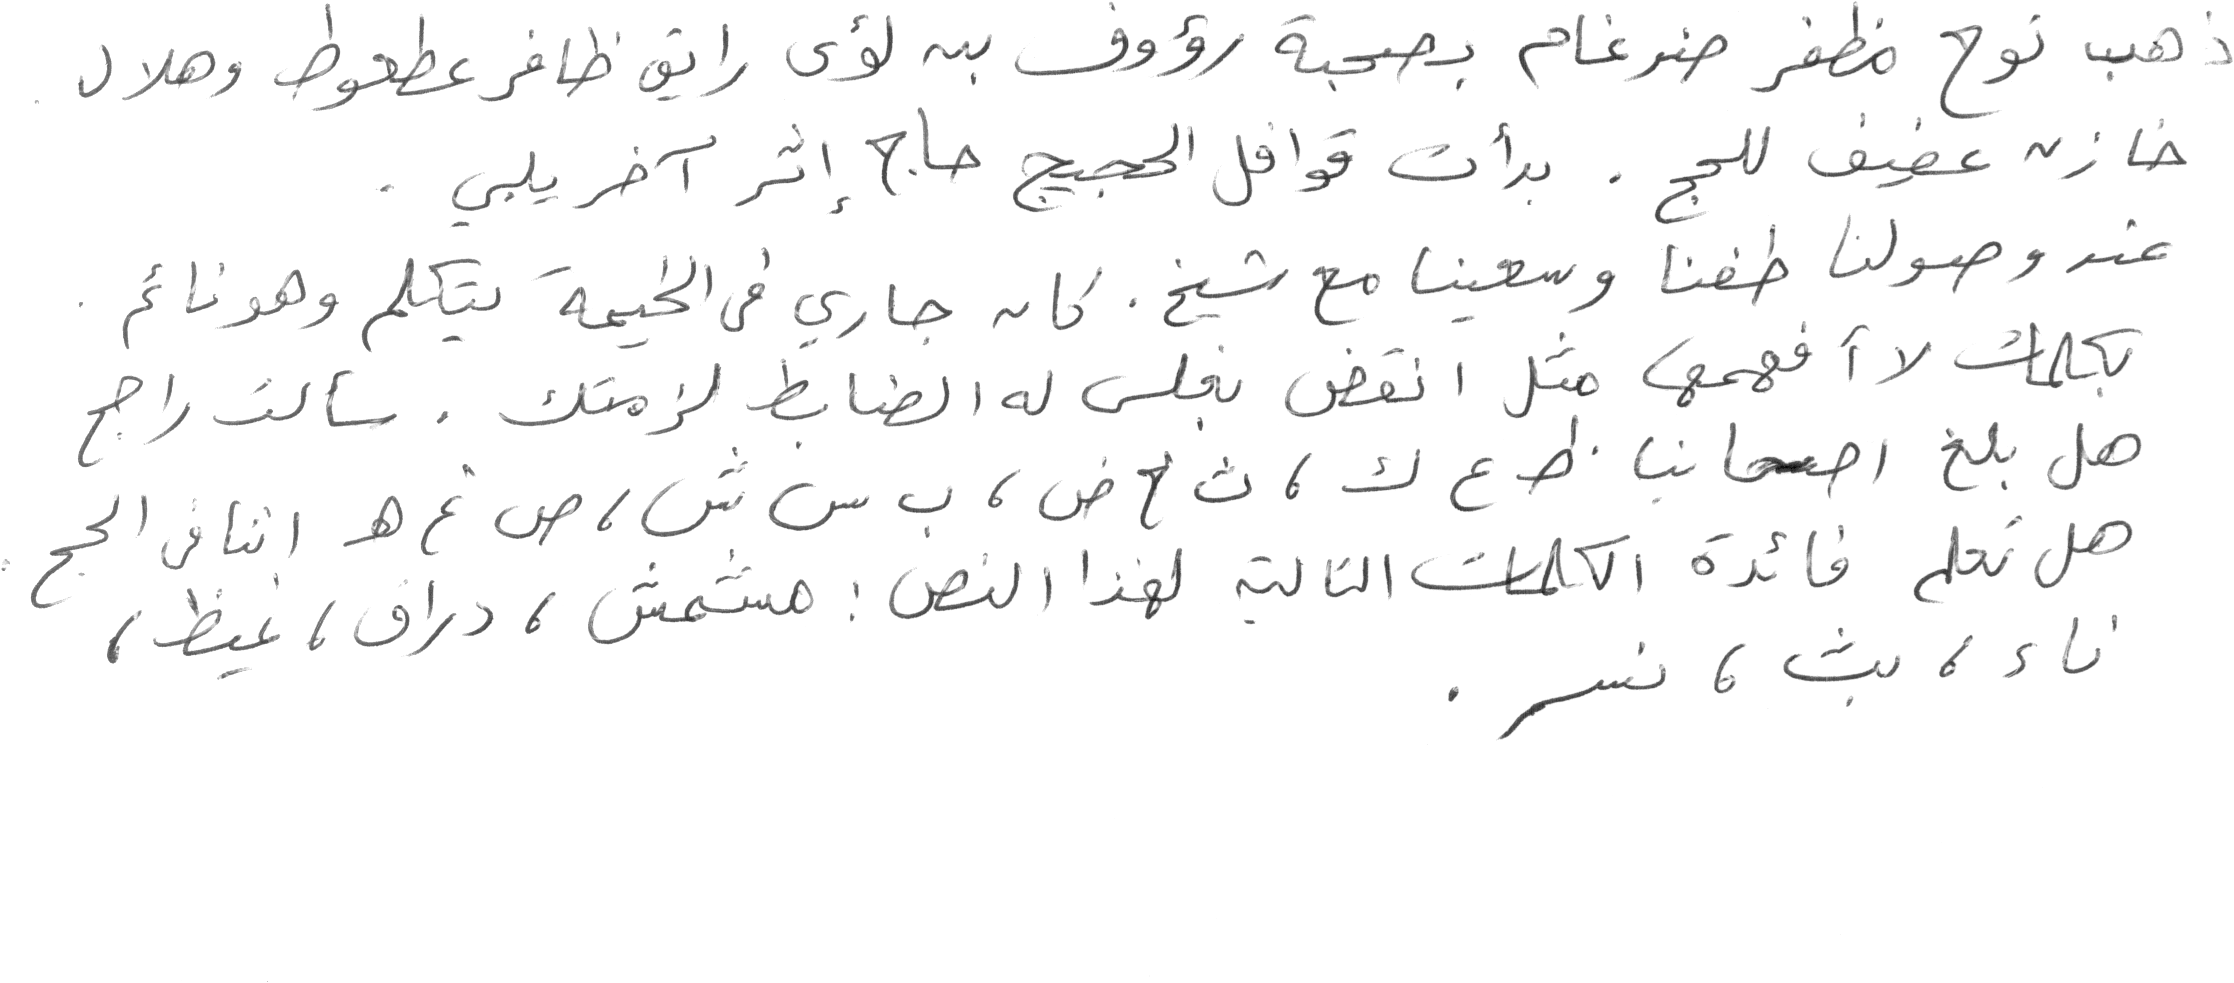 ذهب نوح مظفر ضرغام بصحبة رؤوف بن لؤى رايق ظافر عطعوط وهلال
خازن عفيف للحج . بدأت قوافل الحجيج حاج إثر آخر يلبي .
عند وصولنا طفنا وسعينا مع شيخ . كان جاري فى الخيمة يتكلم وهو نائم .
بكلمات لا أفهمها مثل انقض بغلس له الضابط لزمتك . سألت راجح
هل بلغ اصحابنا ط ع ك ، ث خ ض ، ب س ش ، ص غ هـ اننا فى الحج .
هل تعلم فائدة الكلمات التالية لهذا النص : مشمش ، دراق ، غيظ ،
ناء ، بث ، نسر .